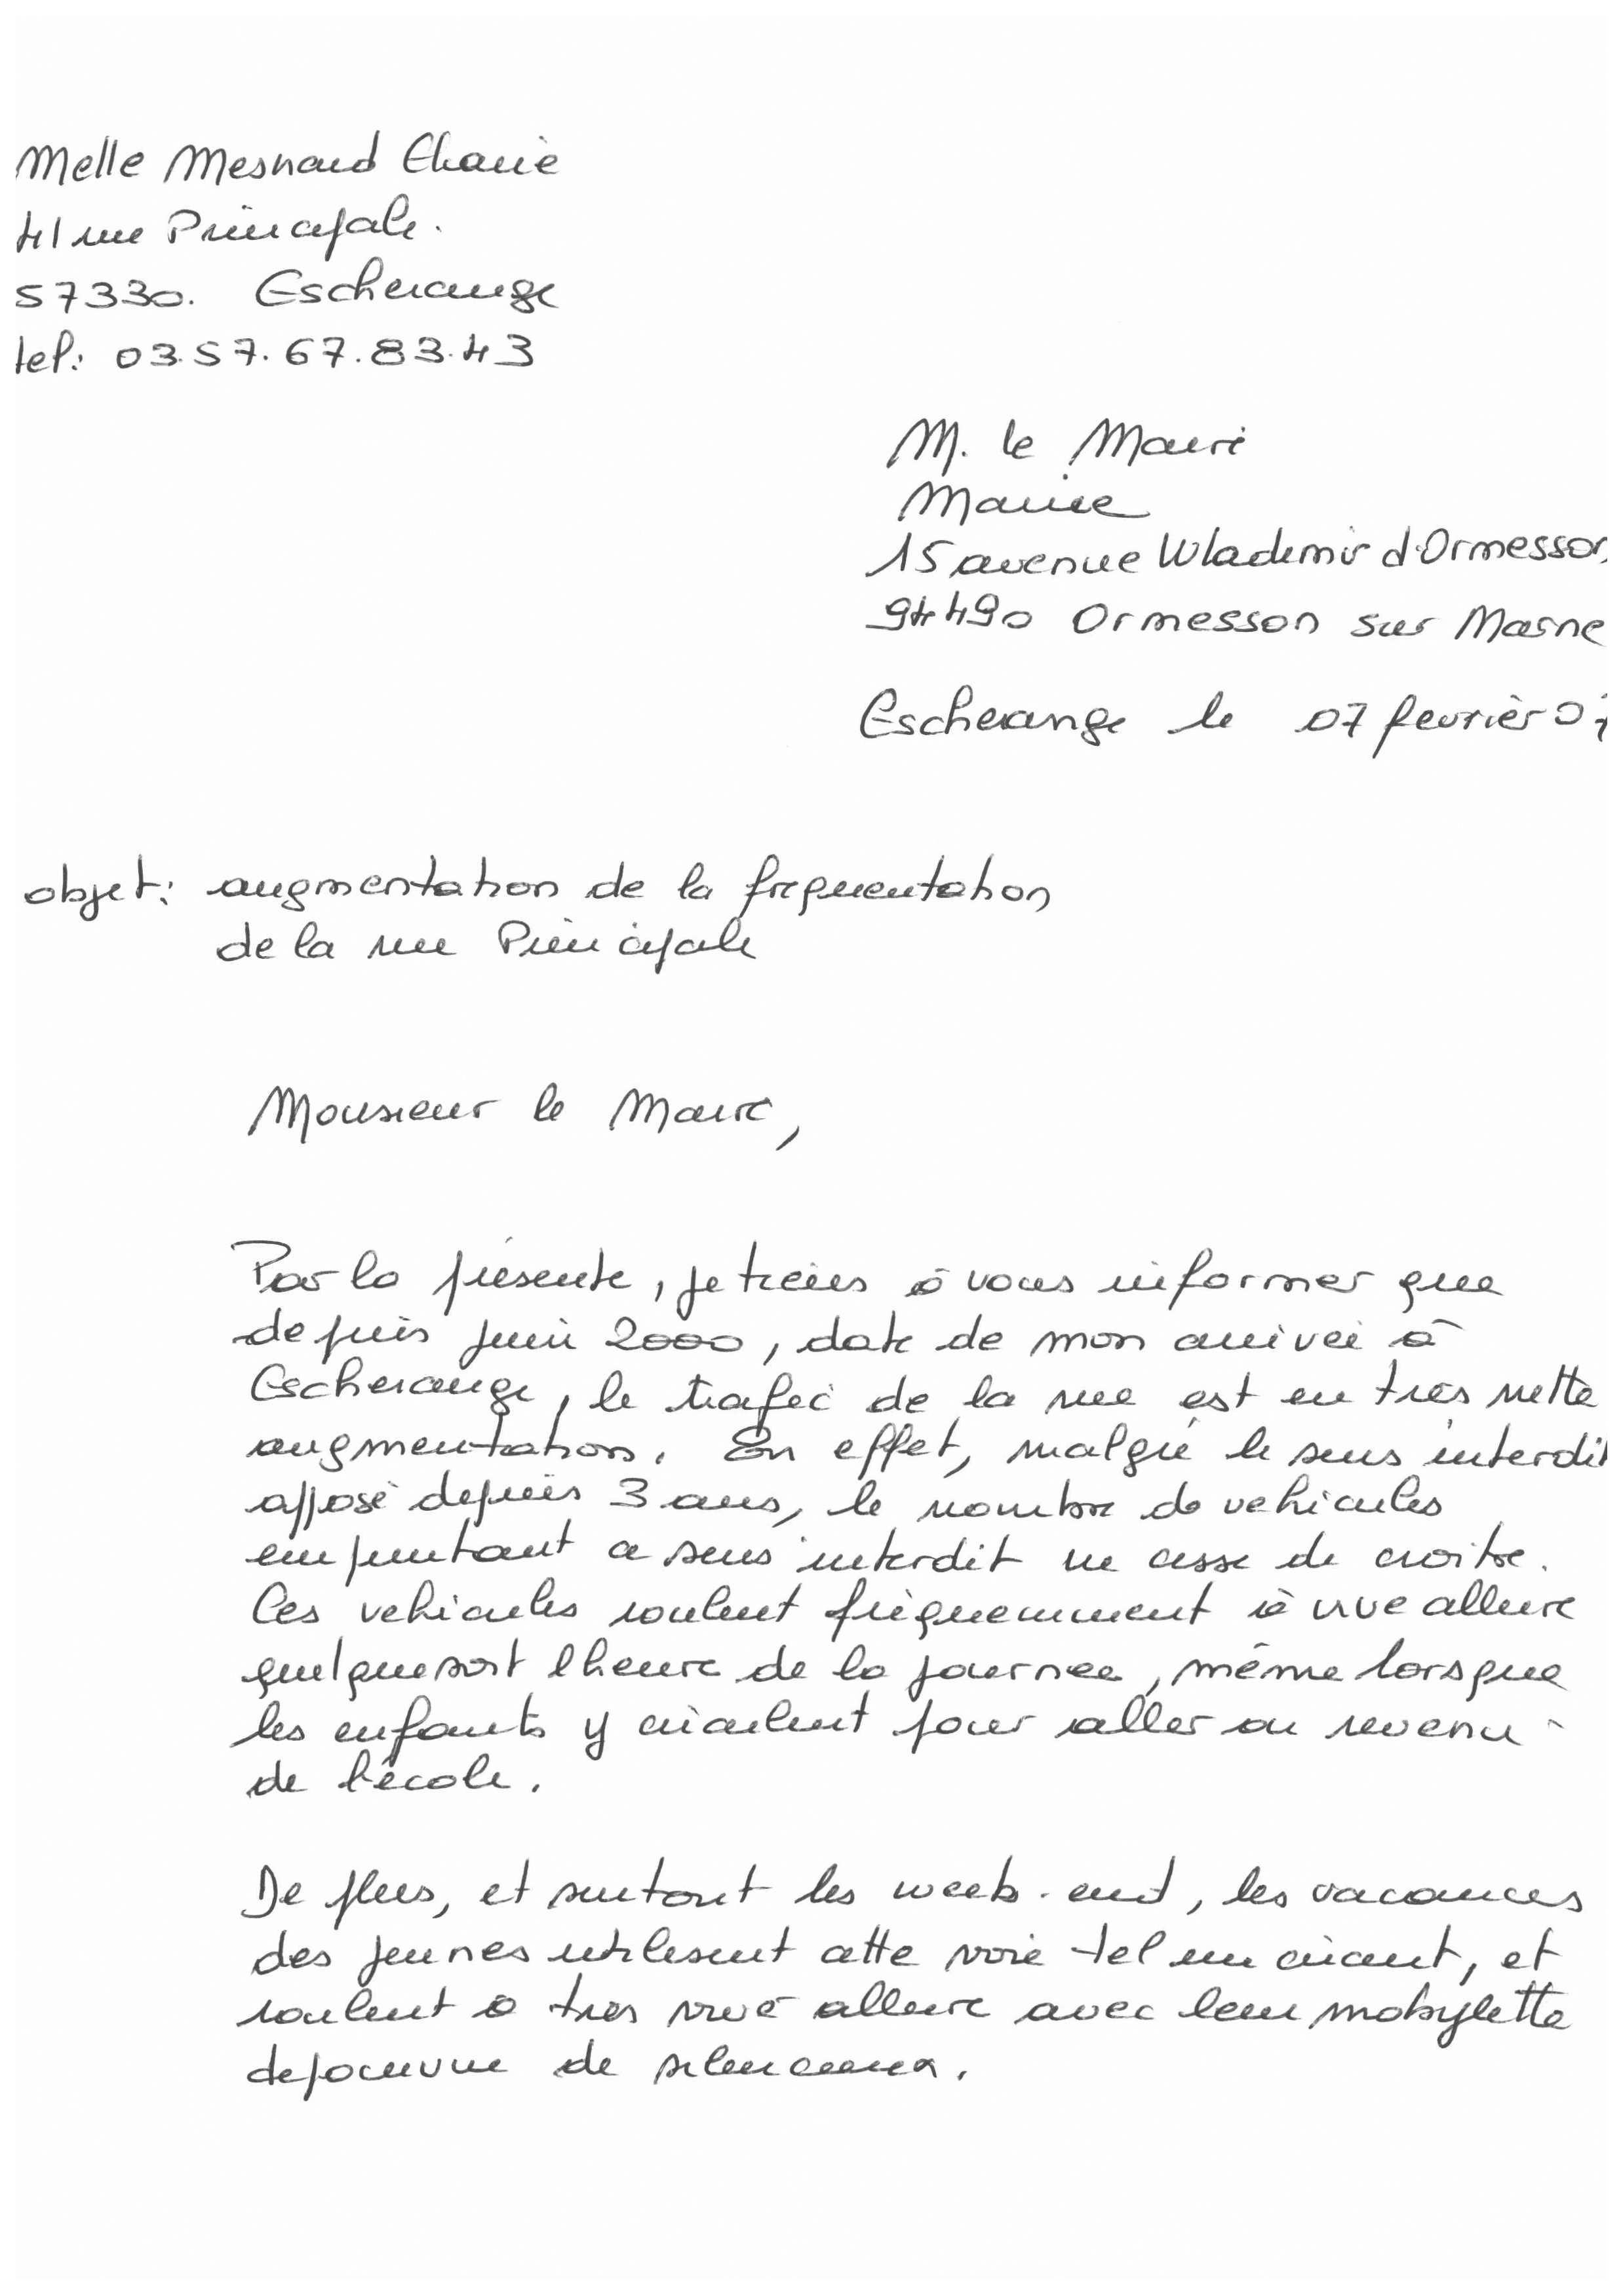 Melle Mesnard Elvarie
41 rue Principale.
57330. Escherange
tel: 03.57.67.83.43
M. le Maire
Mairie
15 avenue Wladimir d'Ormesson
94490 Ormesson sur Marne
Escherange le 07 fevrier 07
objet: augmentation de la frequentation
de la rue Principale
Monsieur le Maire,
Par la présente, je tiens à vous informer que
depuis juin 2000, date de mon arrivée à
Escherange, le trafic de la rue est en très nette
augmentation. En effet, malgré le sens interdit
apposé depuis 3 ans, le nombre de vehicules
empruntant ce sens interdit ne cesse de croitre.
Ces vehicules roulent fréquemment à vive allure
quelquesoit l'heure de la journee, même lorsque
les enfants y circulent pour aller ou revenir
de l'école.
De plus, et surtout les week-end, les vacances
des jeunes utilisent cette voie tel un circuit, et
roulent à très vive allure avec leur mobylette
depourvue de silencieux.